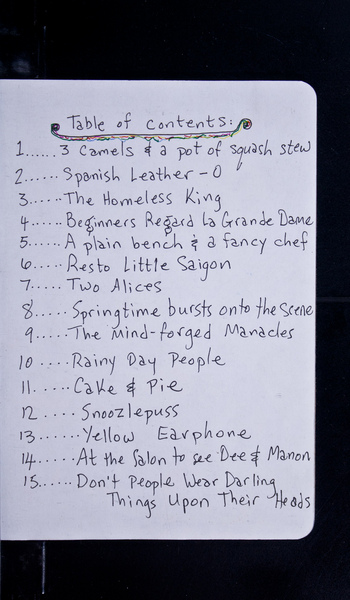 Table of contents:
1......3 Camels & a pot of squash stew
2......Spanish Leather-O
3......The Homeless King
4......Beginners Regard La Grande Dame
5......A plain bench & a fancy chef
6......Resto Little Saigon
7......Two Alices
8......Springtime bursts onto the Scene
9......The Mind-forged Manacles
10.....Rainy Day People
11.....Cake & Pie
12.....Snoozlepuss
13......Yellow Earphone
14.....At the Salon to see Dee & Manon
15......Don't People Wear Darling
Things Upon Their Heads